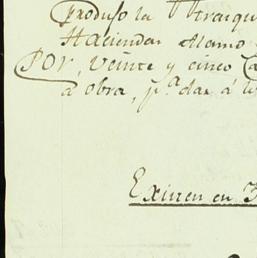 produjo la
Hacienda Alamo
POR, veinte y cinco
à obra, p.ª dar á
Existen en